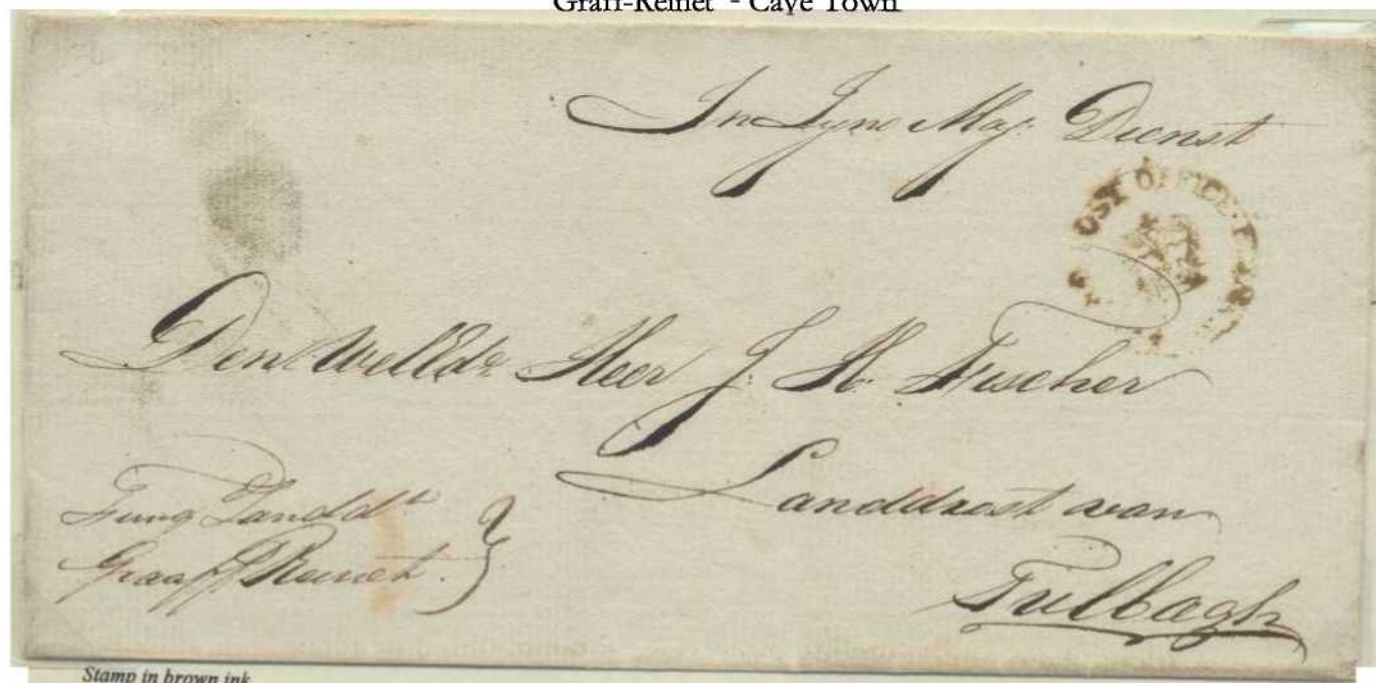 Graff-Reinet - Caye Town
In Zyne Maj: Dienst
OST OFFICE
Den WelEd: Heer J. H. Fischer
Landdrost van
Tulbagh
Fung Landdt
Graaff Reinet.
Stamp in brown ink